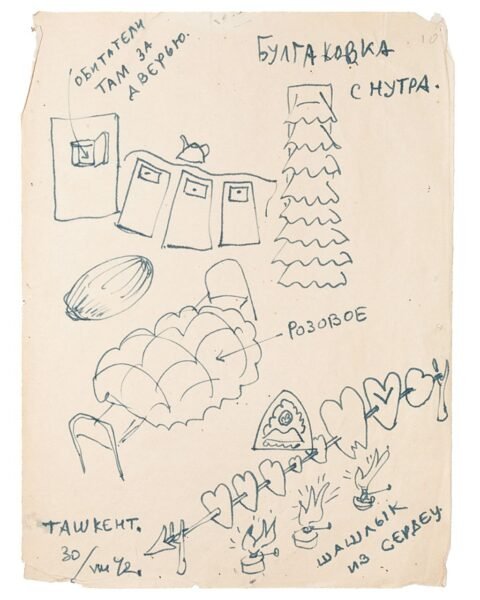 ОБИТАТЕЛИ
ТАМ ЗА
ДВЕРЬЮ.
БУЛГАКОВКА
С НУТРА.
10
РОЗОВОЕ
ТАШКЕНТ.
30/VIII 42.
ШАШЛЫК
ИЗ СЕРДЕЦ.